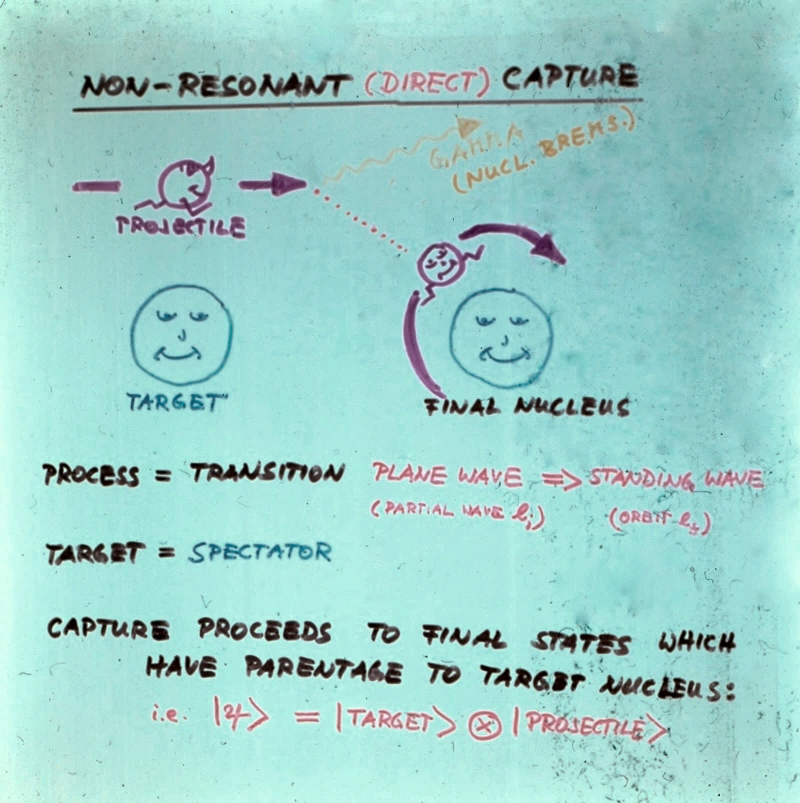 NON-RESONANT (DIRECT) CAPTURE
GAMMA
(NUCL. BREMS.)
PROJECTILE
TARGET
FINAL NUCLEUS
PROCESS = TRANSITION PLANE WAVE ⇒ STANDING WAVE
(PARTIAL WAVE ℓi) (ORBIT ℓf)
TARGET = SPECTATOR
CAPTURE PROCEEDS TO FINAL STATES WHICH
HAVE PARENTAGE TO TARGET NUCLEUS:
i.e. |ψ> = |TARGET> ⊗ |PROJECTILE>